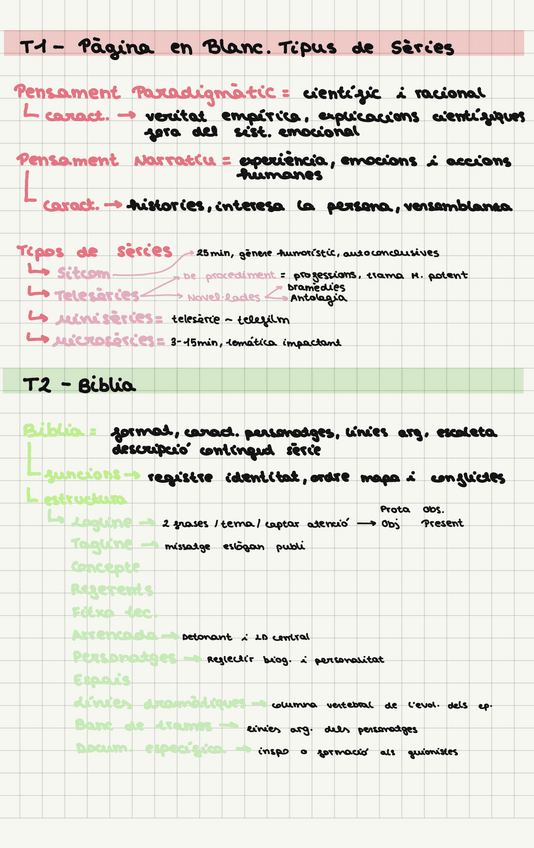 T1 - Pàgina en Blanc. Tipus de Sèries
Pensament Paradigmàtic = científic i racional
caract. → veritat empírica, explicacions científiques
fora del sist. emocional
Pensament Narratiu = experiència, emocions i accions
humanes
caract. → histories, interesa la persona, versemblança
Tipos de sèries
Sitcom → 25min, gènere humorístic, autoconclusives
De procediment = professions, trama M. potent
Telesèries
Novel·lades → Dramèdies
Antologia
Minisèries = telesèrie ~ telefilm
Microsèries = 3-15min, temàtica impactant
T2 - Biblia
Biblia = format, caract. personatges, línies arg. escaleta
descripció contingut sèrie
funcions → registre identitat, ordre mapa i conflictes
estructura
Logline → 2 frases / tema / captar atenció → Prota Obs.
Obj Present
Tagline → missatge eslògan publi
Concepte
Referents
Fitxa tec.
Arrencada → Detonant i LD central
Personatges → Reflectir biog. i personalitat
Espais
Línies dramàtiques → columna vertebral de l'evol. dels ep.
Banc de trames → línies arg. dels personatges
Docum. específica → inspo o formació als guionistes